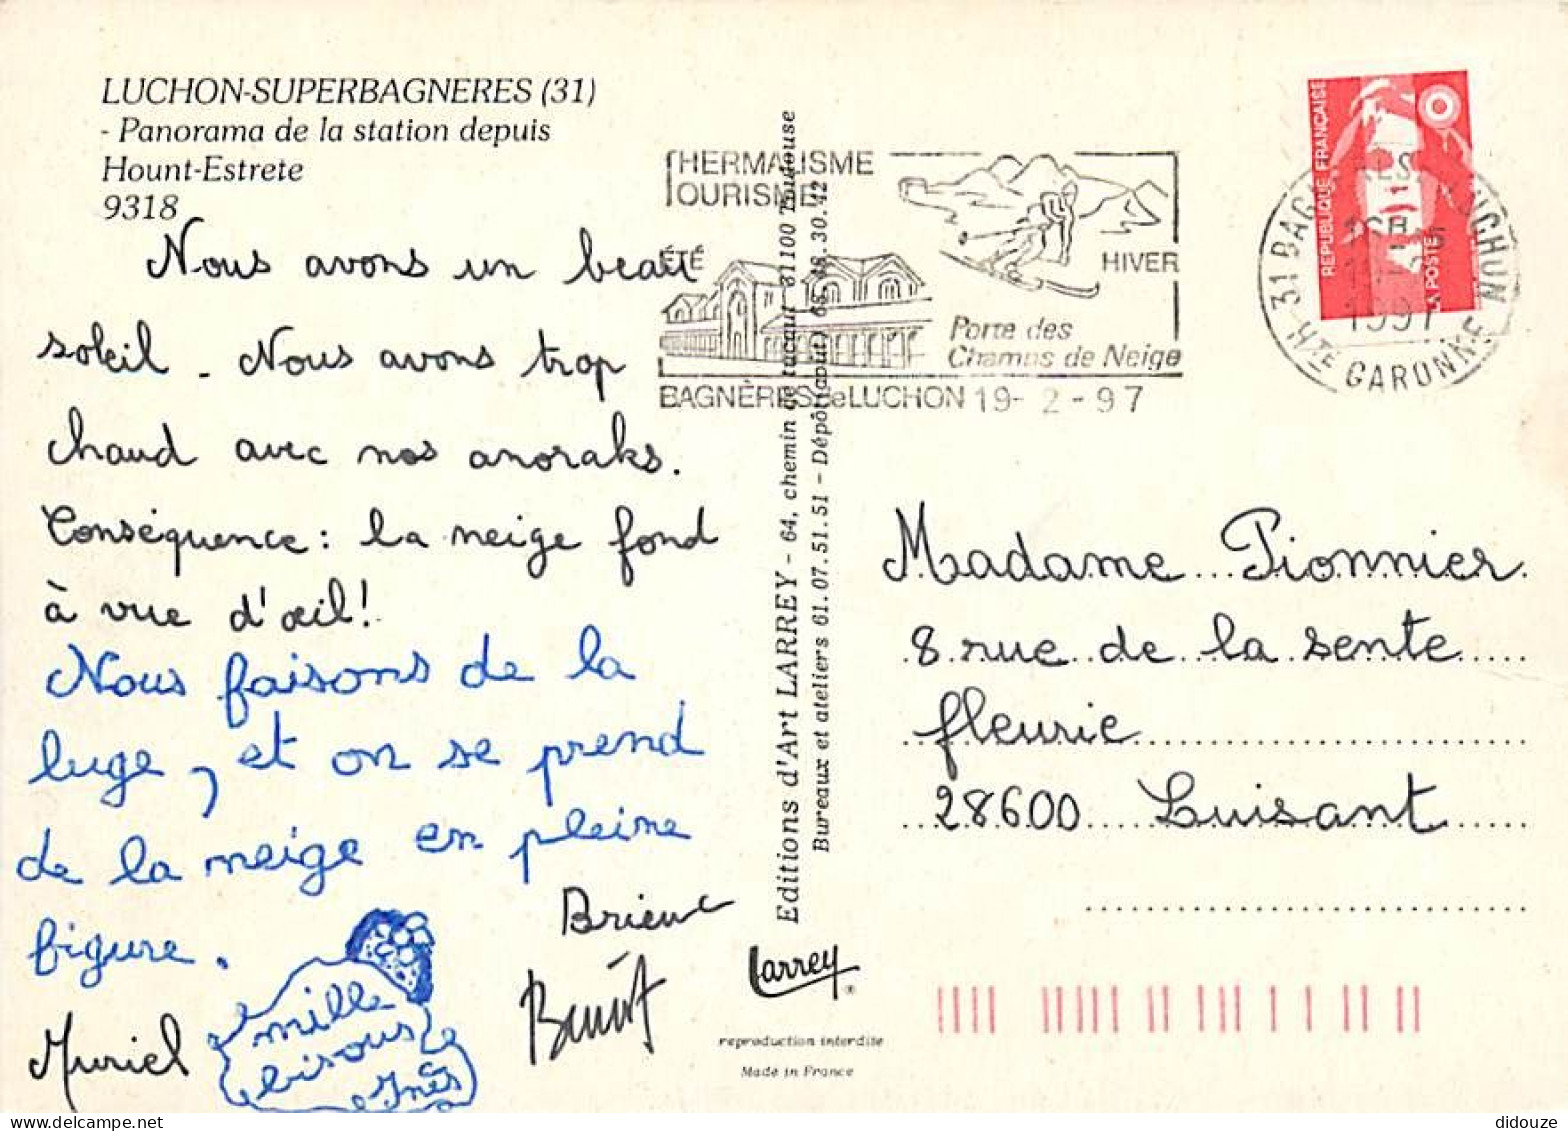 LUCHON-SUPERBAGNERES (31)
- Panorama de la station depuis
Hount-Estrete
9318
Nous avons un beau
soleil. Nous avons trop
chaud avec nos anoraks.
Conséquence : la neige fond
à vue d'œil !
Nous faisons de la
luge, et on se prend
de la neige en pleine
figure.
Brieuc
Benoît
Muriel
mille
bisous
Inès
THERMALISME
TOURISME
ÉTÉ
HIVER
Porte des
Champs de Neige
BAGNÈRES de LUCHON 19-2-97
Editions d'Art LARREY - 64, chemin de 31100 Toulouse
Bureaux et ateliers 61.07.51.51 - Dépôt 30.42
Larrey
®
reproduction interdite
Made in France
REPUBLIQUE FRANÇAISE
LA POSTE
31 BAGNERES LUCHON
16H
1997
HTE GARONNE
Madame Pionnier
8 rue de la sente
fleurie
28600 Luisant
© didouze